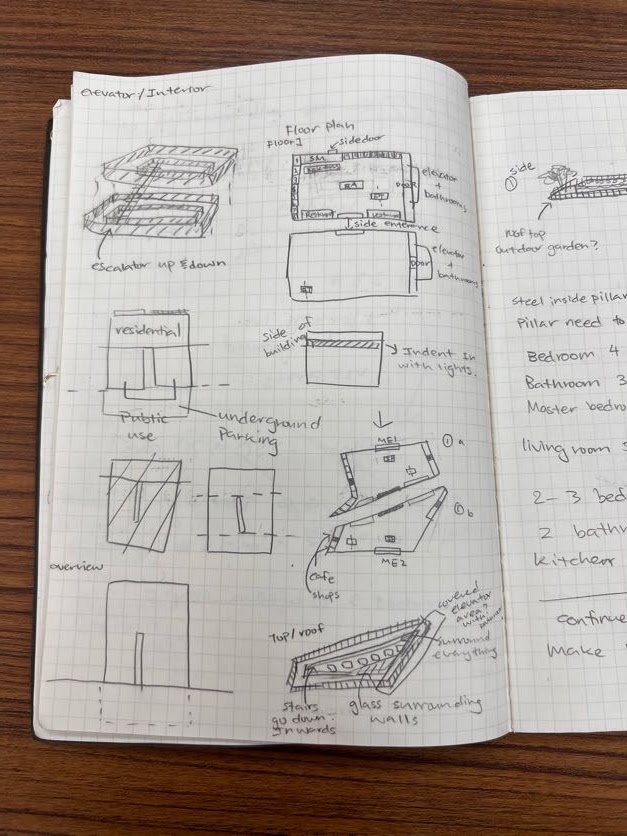 Elevator/Interior
Floor plan
Floor 1
side door
SM
elevator
+
bathrooms
Door
side enterence
escalator up & down
elevator
+
bathrooms
Door
residential
Public
use
underground
Parking
Side of
building
Indent in
with lights.
ME1
① a
① b
ME2
cafe
shops
overview
Top/roof
covered
elevator
area?
with
surround
everything
stairs
go down
Inwards
glass surrounding
walls
① side
roof top
outdoor garden?
Steel inside pillar
Pillar need to
Bedroom 4
Bathroom 3
Master bedro
living room
2-3 bed
2 bathr
kitchen
continue
Make